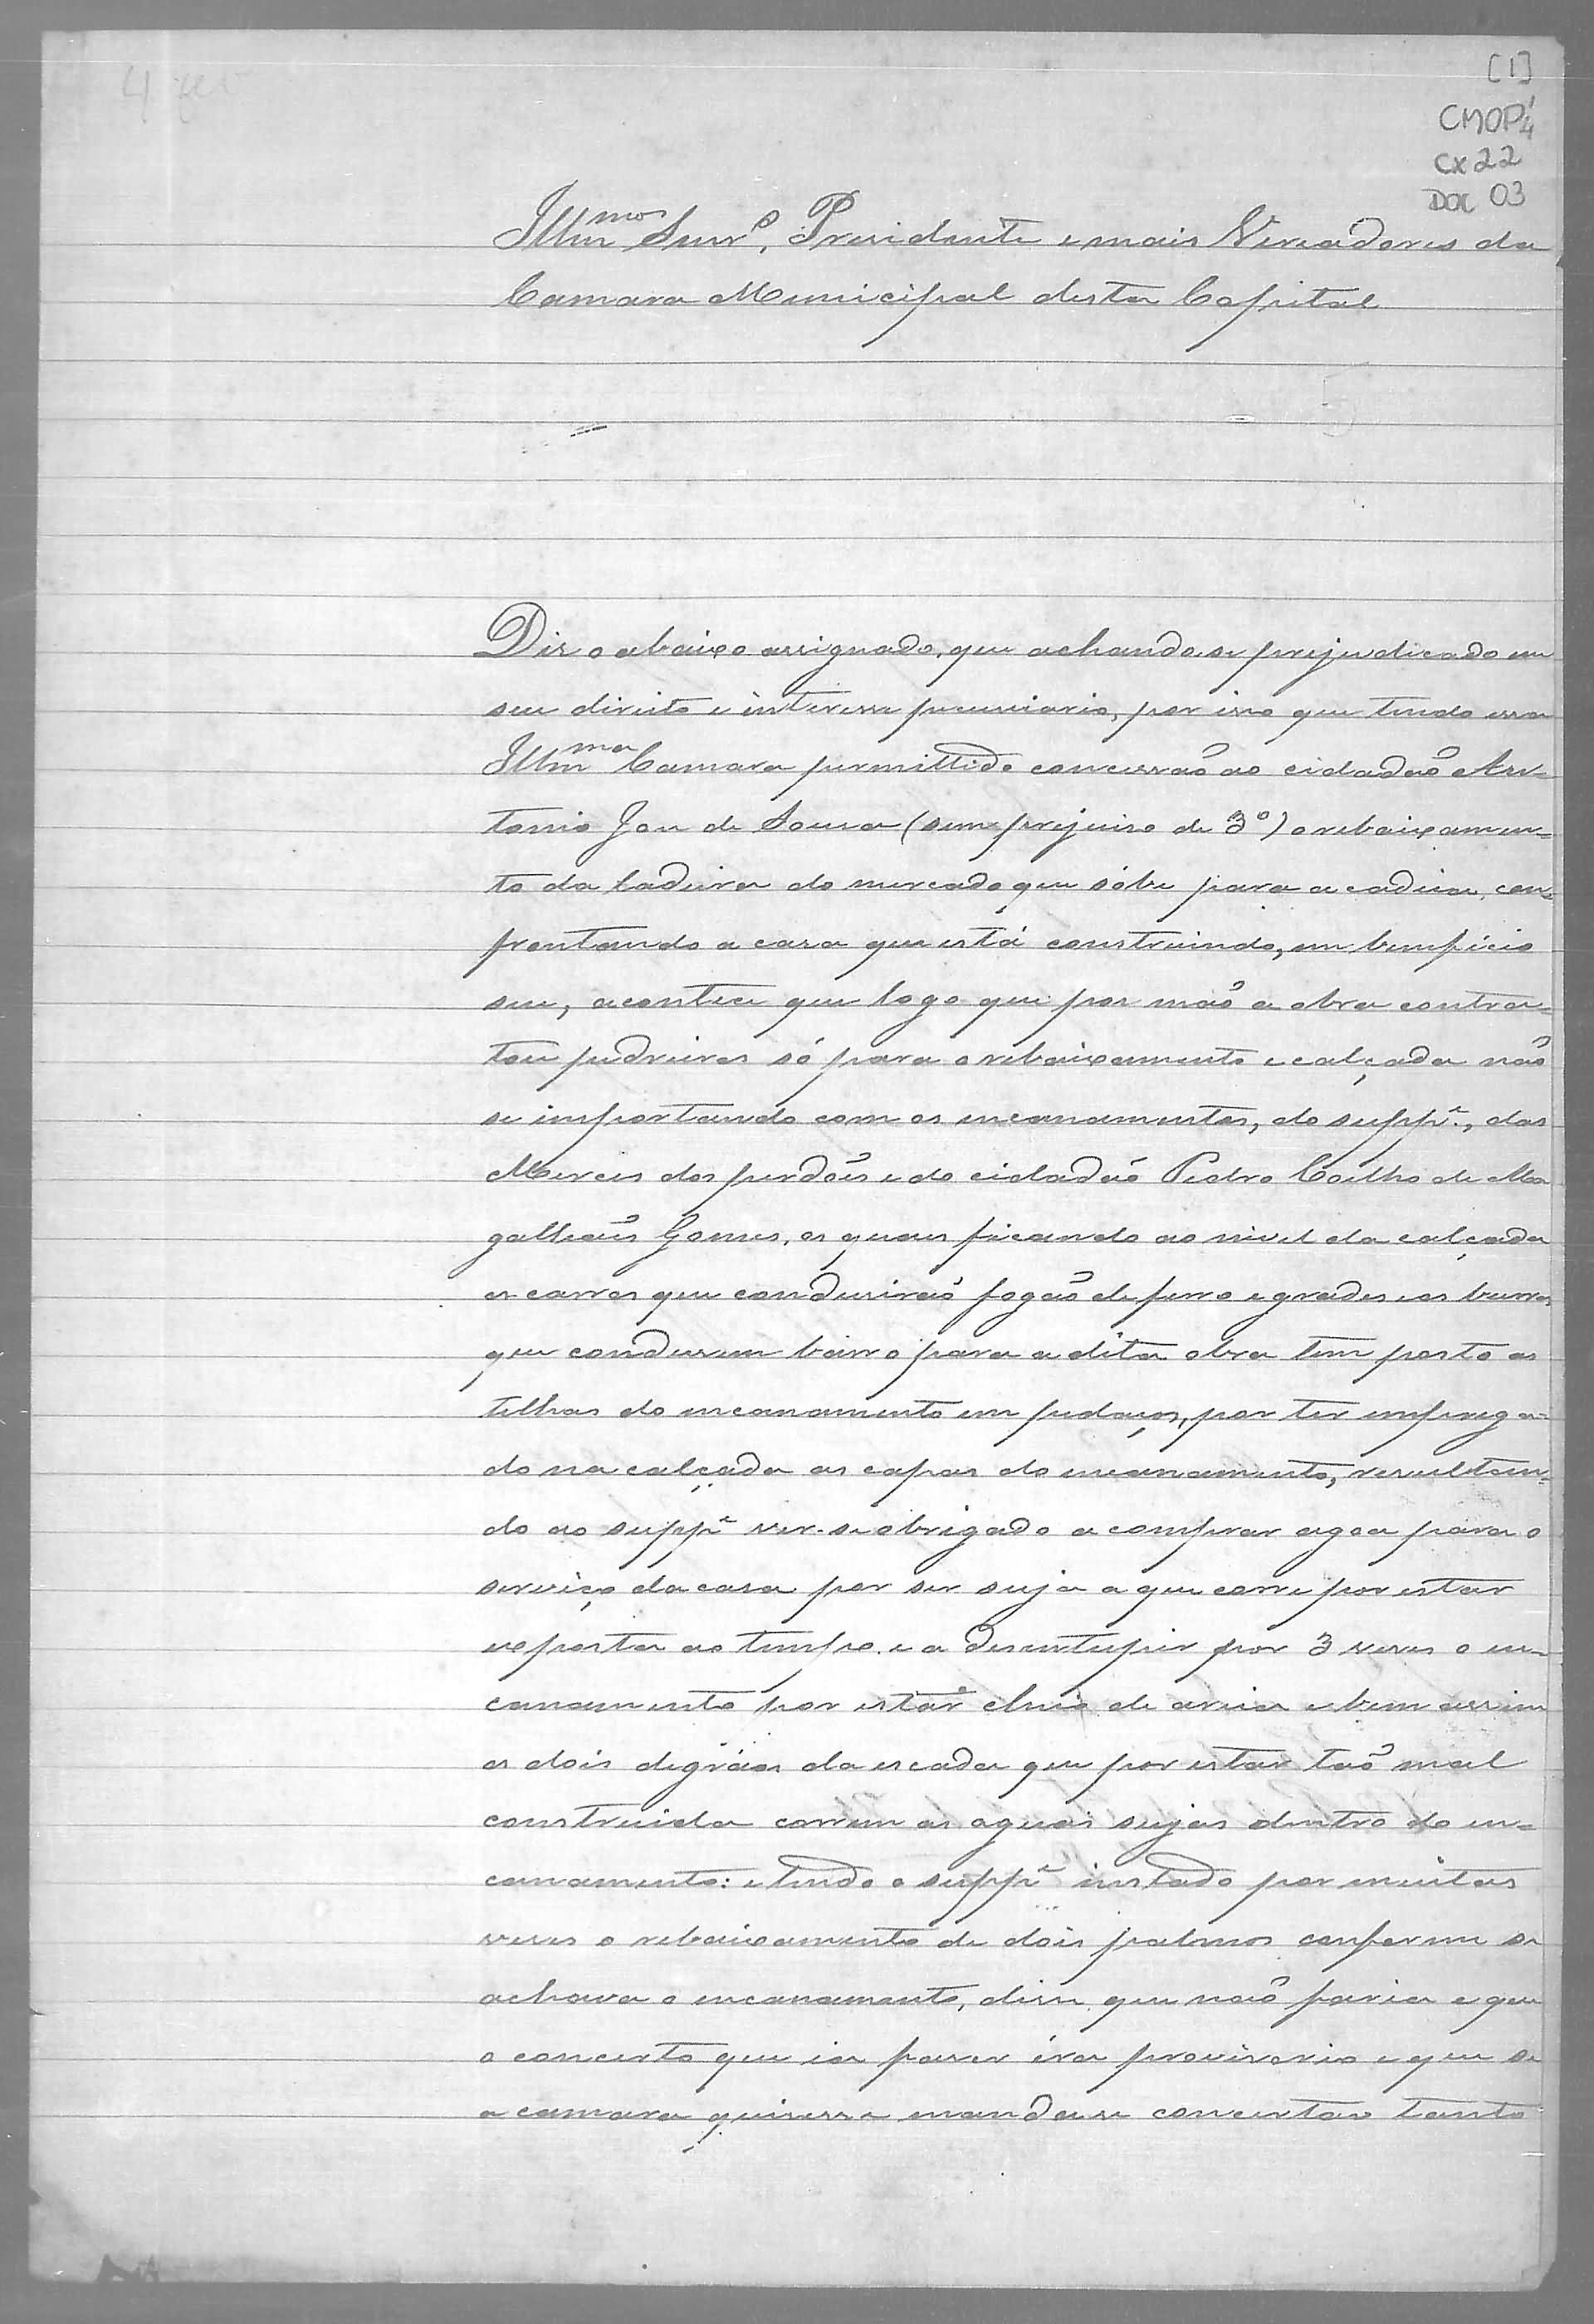 [1]
CMOP
CX 22
DOC 03
Illmos Snrs. Presidente e mais Vereadores da
Camara Municipal desta Capital
Dis o abaixo assignado, que achando se prejudicado em
seu direito e interesse pecuniario, por isso que tendo essa
Illma Camara permittido concessaõ ao cidadaõ An-
tonio José de Sousa (sem prejuiso de 3º) o rebaixamen-
to da ladeira do mercado que sóbe para a cadeia, con-
frontando a casa que está construindo, em beneficio
seu, acontece que logo que por maõ a obra contra-
tou pedreiros só para o rebaixamento e calçada naõ
se importando com os encanamentos, do suppe., das
Merces dos perdões e do cidadaõ Pedro Coelho de Ma
galhaẽs Gomes, os quaes ficando ao nivel da calçada
os carros que condusiraõ fogaõ de ferro e grades e os burros
que condusem barro para a dita obra tem posto as
telhas do encanamento em pedaços, por ter emprega-
do na calçada as capas do encanamento, resultan-
do ao suppe ver-se obrigado a comprar agoa para o
serviço da casa por ser suja a que corre por estar
exposta ao tempo e a desentupir por 3 veses o en-
canamento por estár cheio de areia e bem assim
os dois degráos da escada que por estar taõ mal
construida correm as aguas sujas dentro do en-
canamento: e tendo o suppe instado por muitas
veses o rebaixamento de dois palmos conforme se
achava o encanamento, disse que naõ faria e que
o concerto que ia faser éra provisorio e que se
a camara quisesse mandasse concertar tanto